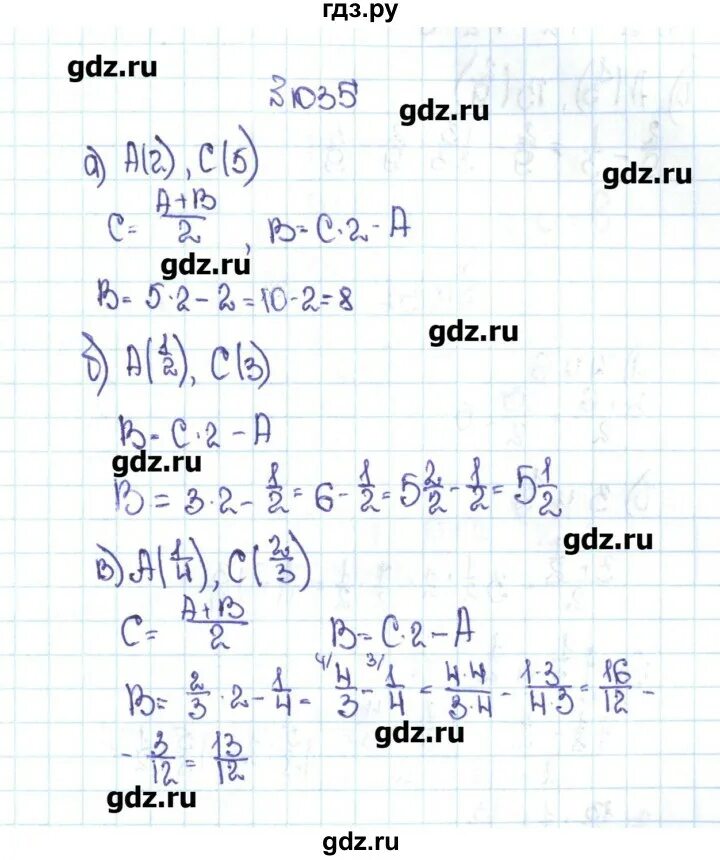 гдз.ру
gdz.ru
№1035
gdz.ru
а) A(2), C(5)
gdz.ru
C = (A+B)/2, B = C·2 - A
gdz.ru
B = 5·2 - 2 = 10 - 2 = 8
gdz.ru
б) A(1/2), C(3)
B = C·2 - A
gdz.ru
B = 3·2 - 1/2 = 6 - 1/2 = 5 2/2 - 1/2 = 5 1/2
gdz.ru
в) A(1/4), C(2/3)
C = (A+B)/2 B = C·2 - A
B = 2/3 · 2 - 1/4 = 4/ 4/3 - 3/ 1/4 = 4·4/3·4 - 1·3/4·3 = 16/12 -
gdz.ru
- 3/12 = 13/12
gdz.ru
gdz.ru